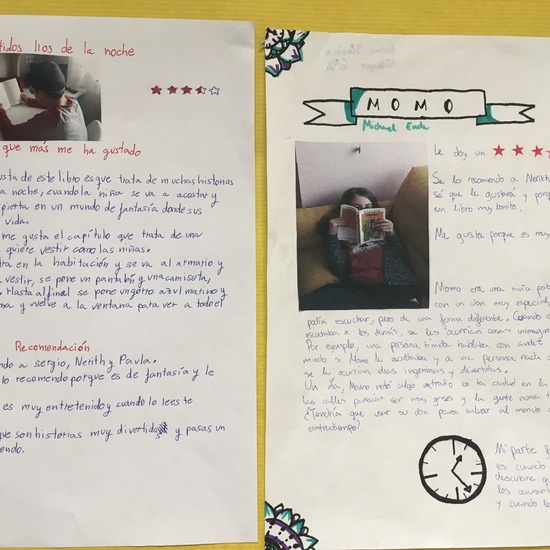 tidos líos de la noche
que más me ha gustado
usta de este libro es que trata de muchas historias
a noche, cuando la niña se va a acostar y
pierta en un mundo de fantasía donde sus
vida.
me gusta el capítulo que trata de una
quiere vestir como las niñas.
tra en la habitación y se va al armario y
vestir, se pone un pantalón y una camiseta,
Hasta al final se pone un gorro azul marino y
ma y vuelve a la ventana para ver a todo el
Recomendación
ndo a sergio, Nerith y Paula.
lo recomiendo porque es de fantasía y le
es muy entretenido y cuando lo lees te
que son historias muy divertidas y pasas un
endo.
MOMO
Michael Ende
Le doy un
Se lo recomiendo a Nerith
sé que le gustará y porq
un libro muy bonito.
Me gusta porque es muy
Momo era una niña pob
con un don muy especial
podía escuchar, pero de una forma diferente. Cuando e
escuchaba a los demás, se les ocurrían cosas
Por ejemplo, una persona tímida hablaba con
miedo si Momo le escuchaba y a una persona
se le ocurrían ideas ingeniosas y divertidas.
Un día, Momo notó algo extraño en la ciudad en la
las calles parecían ser más grises y la gente nunca t
¿Tendría que usar su don para salvar al mundo
contratiempo?
Mi parte f
es cuando
descubre q
los
y cuando